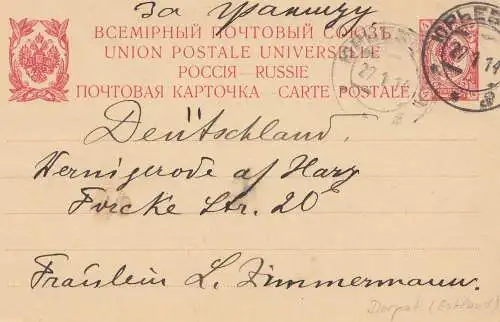 за границу
ВСЕМІРНЫЙ ПОЧТОВЫЙ СОЮЗЪ
UNION POSTALE UNIVERSELLE
РОССІЯ — RUSSIE
ПОЧТОВАЯ КАРТОЧКА — CARTE POSTALE
ЮРЬЕВ
27 1 14
27 1 14
Deutschland.
Wernigerode a/ Harz
Forcke Str. 20
Fräulein L. Zimmermann.
Dorpat (Estland)